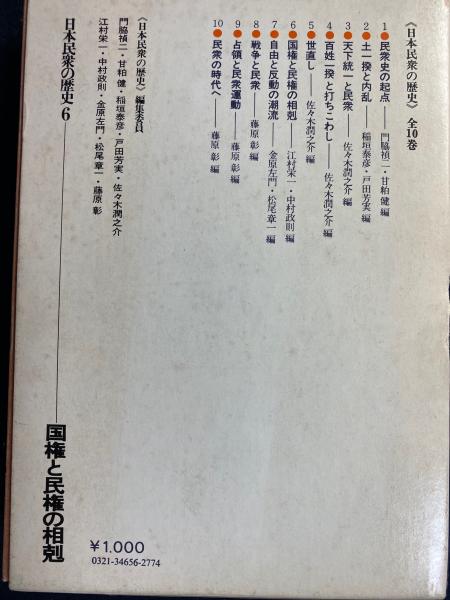 《日本民衆の歴史》 全10巻
1●民衆史の起点——門脇禎二・甘粕 健 編
2●土一揆と内乱——稲垣泰彦・戸田芳実 編
3●天下統一と民衆——佐々木潤之介 編
4●百姓一揆と打ちこわし——佐々木潤之介 編
5●世直し——佐々木潤之介 編
6●国権と民権の相剋——江村栄一・中村政則 編
7●自由と反動の潮流——金原左門・松尾章一 編
8●戦争と民衆——藤原 彰 編
9●占領と民衆運動——藤原 彰 編
10●民衆の時代へ——藤原 彰 編
《日本民衆の歴史》編集委員
門脇禎二・甘粕 健・稲垣泰彦・戸田芳実・佐々木潤之介
江村栄一・中村政則・金原左門・松尾章一・藤原 彰
日本民衆の歴史6——国権と民権の相剋
¥1,000
0321-34656-2774